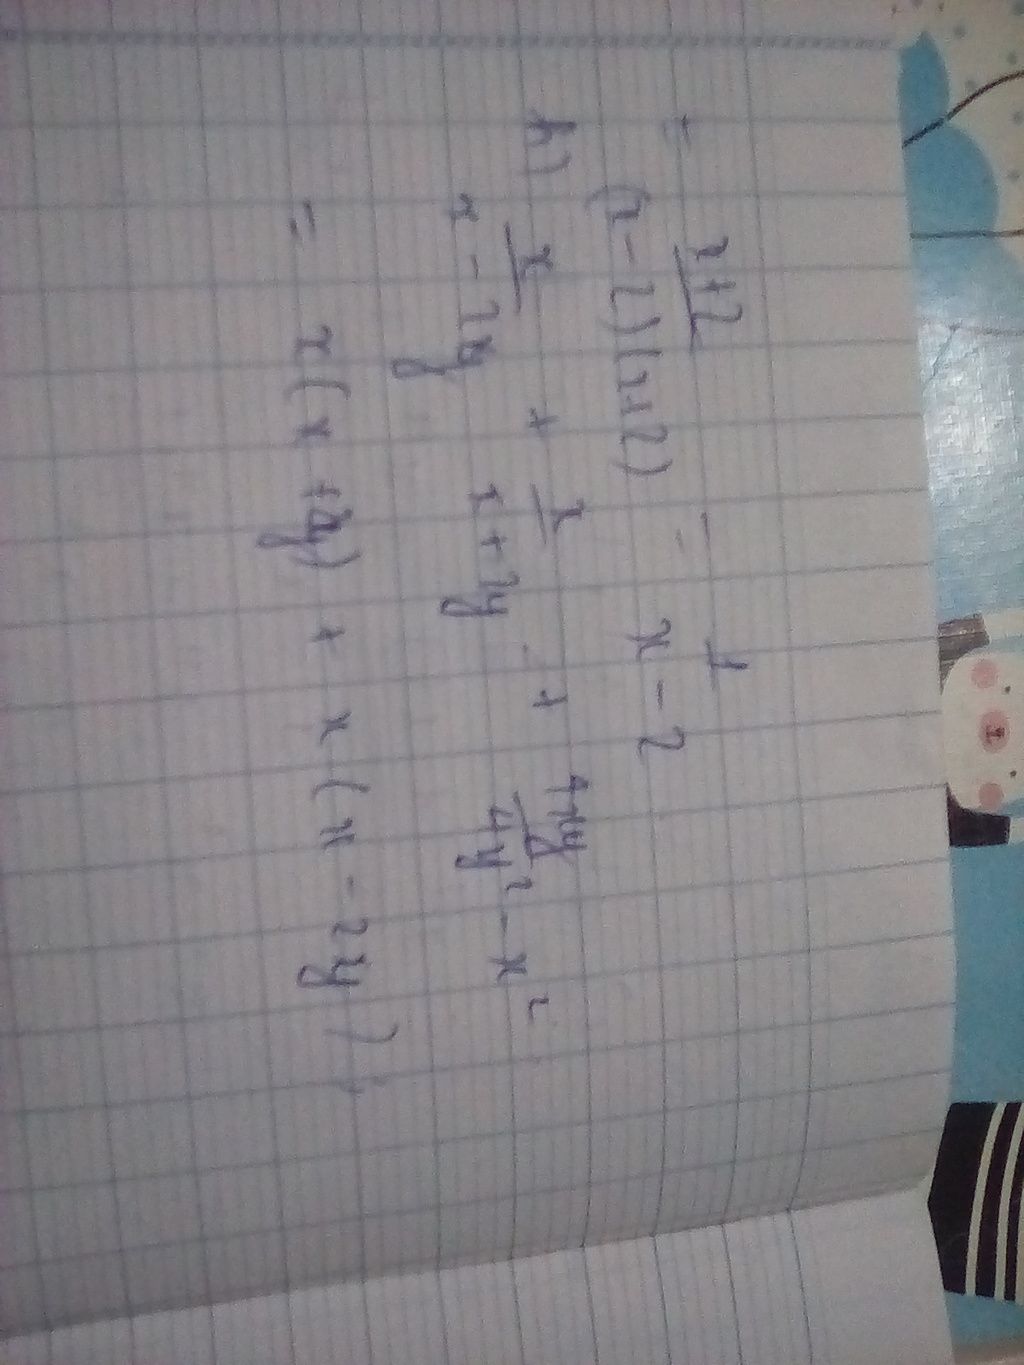 = x+2 / (x-2)(x+2) = 1 / x-2
h) x / x-2y + x / x+2y + 4xy / 4y² - x²
= x(x+2y) + x(x-2y)